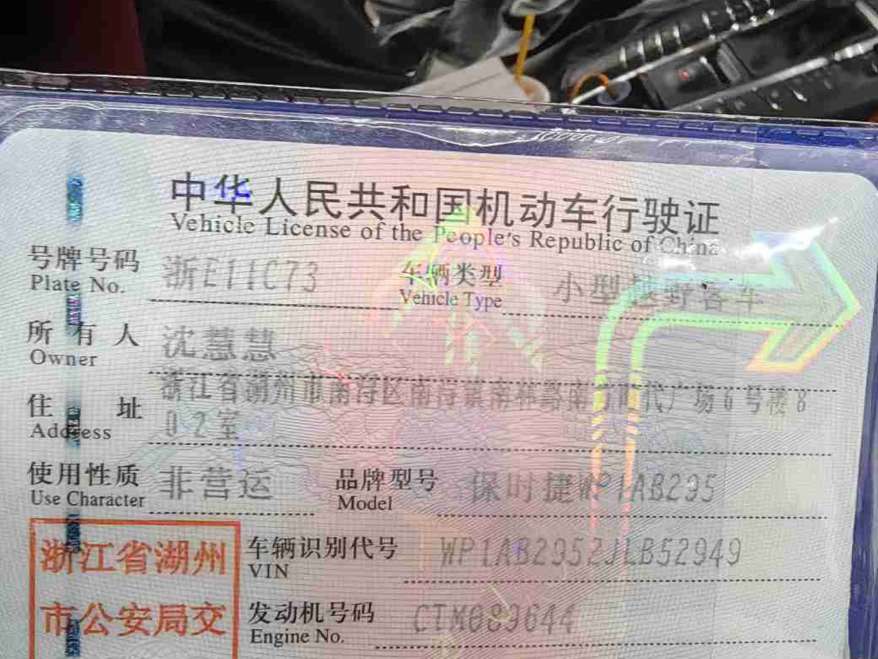 中华人民共和国机动车行驶证
Vehicle License of the People's Republic of China
号牌号码 浙E11C73 车辆类型 小型越野客车
Plate No. Vehicle Type
所有人 沈慧慧
Owner
住址 浙江省湖州市南浔区南浔镇南林路南方时代广场6号楼8
Address 02室
使用性质 非营运 品牌型号 保时捷WP1AB295
Use Character Model
浙江省湖州 车辆识别代号 WP1AB2952JLB52949
VIN
市公安局交 发动机号码 CTM089644
Engine No.